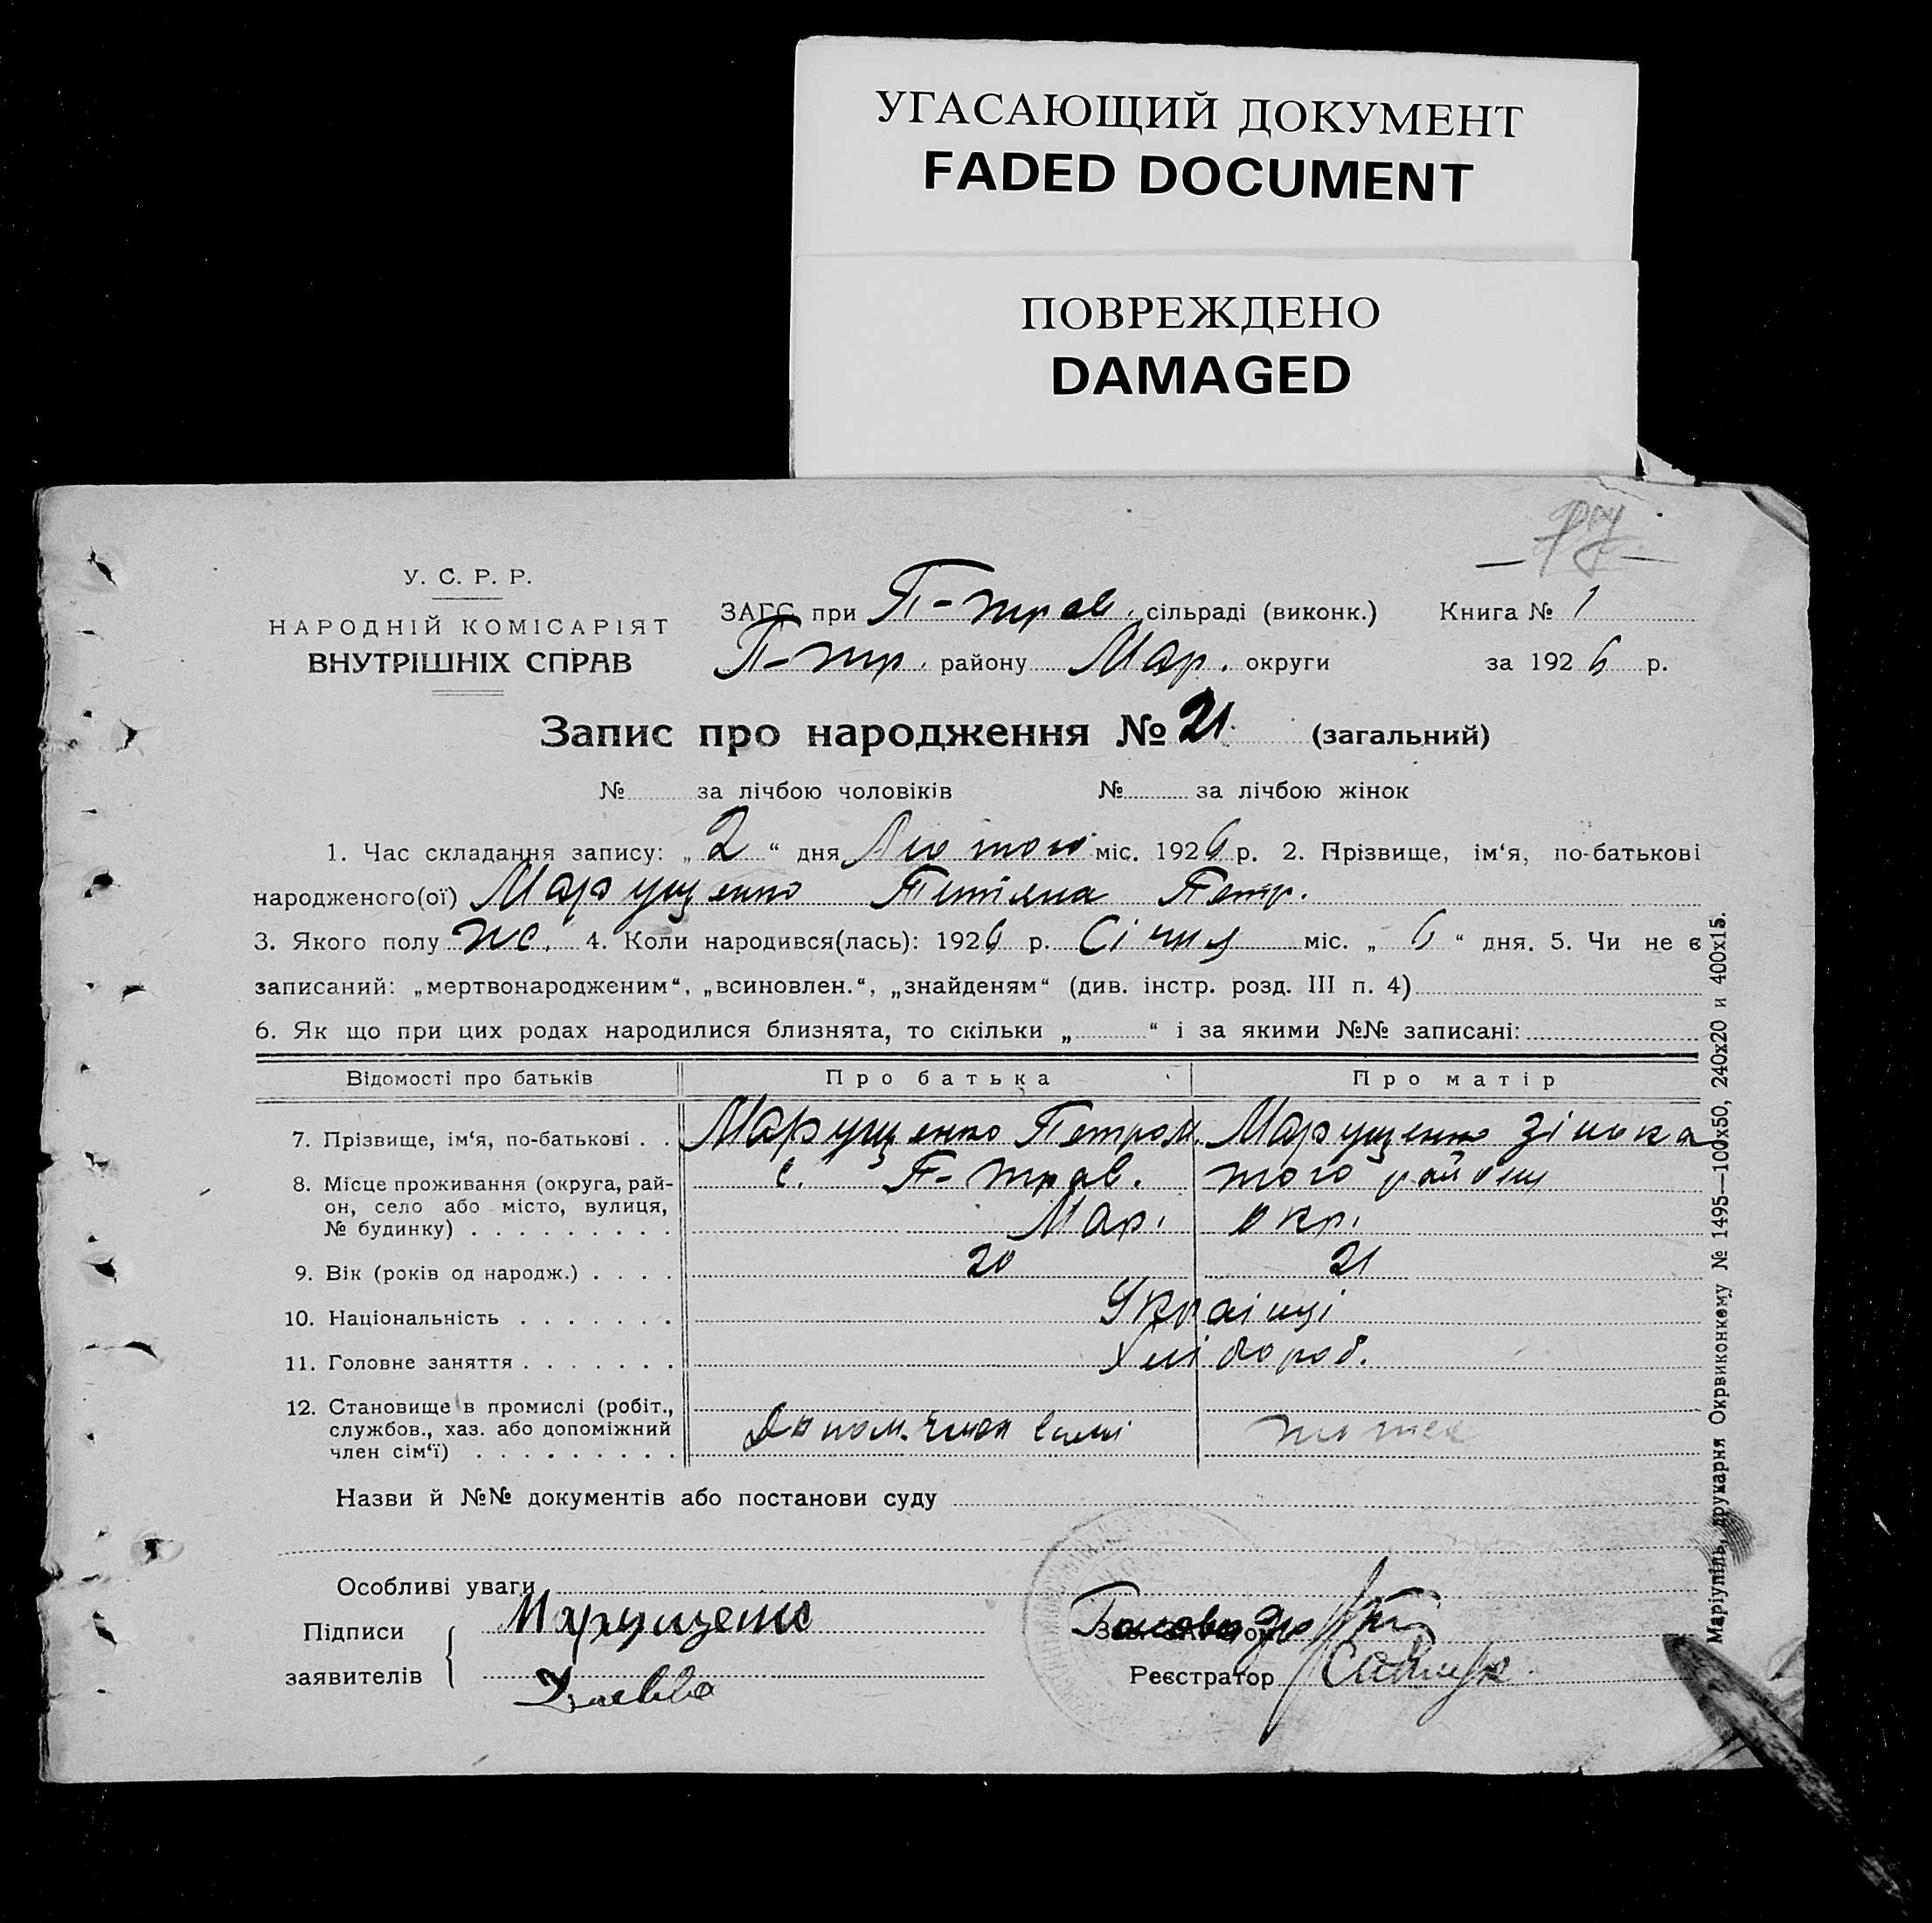 УГАСАЮЩИЙ ДОКУМЕНТ
FADED DOCUMENT
ПОВРЕЖДЕНО
DAMAGED
У. С. Р. Р.
НАРОДНІЙ КОМІСАРІЯТ
ВНУТРІШНІХ СПРАВ
ЗАГС при П-трав. сільраді (виконк.) Книга № 1
П-тр. району Мар. округи за 1926 р.
Запис про народження № 21 (загальний)
№ за лічбою чоловіків № за лічбою жінок
1. Час складання запису: „2“ дня Лютого міс. 1926 р. 2. Прізвище, ім‘я, по-батькові
народженого(ої) Марущенко Тітяна Петр.
3. Якого полу жс. 4. Коли народився(лась): 1926 р. Січня міс. „6“ дня. 5. Чи не є
записаний: „мертвонародженим“, „всиновлен.“, „знайденям“ (див. інстр. розд. III п. 4)
6. Як що при цих родах народилися близнята, то скільки „ “ і за якими №№ записані:
Відомості про батьків Про батька Про матір
7. Прізвище, ім‘я, по-батькові . . Марущенко Петро М. Марущенко Зінька
8. Місце проживання (округа, рай- с. П-трав. того району
он, село або місто, вулиця,
№ будинку) Мар. окр.
9. Вік (років од народж.) 20 21
10. Національність Українці
11. Головне заняття Хлібороб.
12. Становище в промислі (робіт.,
службов., хаз. або допоміжний
член сім‘ї) Допом. член сімї тоже
Назви й №№ документів або постанови суду
Особливі уваги
Підписи Марущенко
заявителів
Голова
Реєстратор
Маріупіль, друкарня Окрвиконкому № 1495—100х50, 240х20 и 400х15.